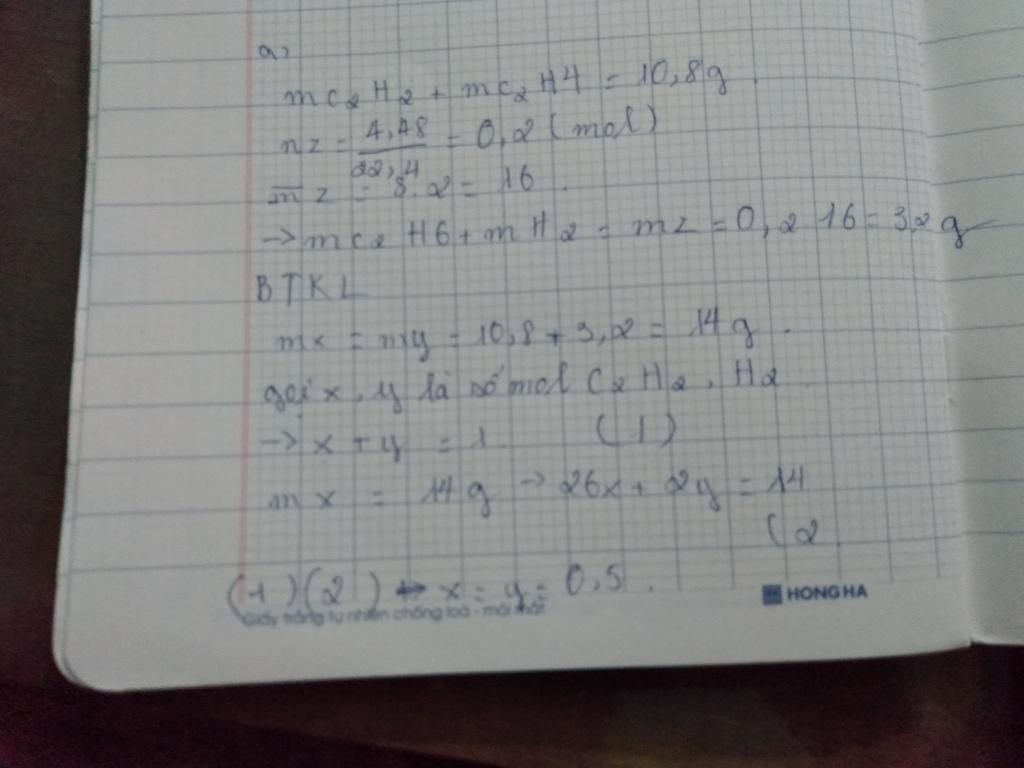 a,
mC2H2 + mC2H4 = 10,8g.
nz = 4,48/22,4 = 0,2 (mol)
mz = 8.2 = 16.
→ mC2H6 + mH2 = mz = 0,2 16 = 3,2g
BTKL
mx = my = 10,8 + 3,2 = 14g.
gọi x, y là số mol C2H2, H2
→ x + y = 1 (1)
mx = 14g → 26x + 2y = 14
(2
(1)(2) ↔ x = y = 0,5.
HONG HA
Giấy trắng tự nhiên chống loá - mỏi mắt